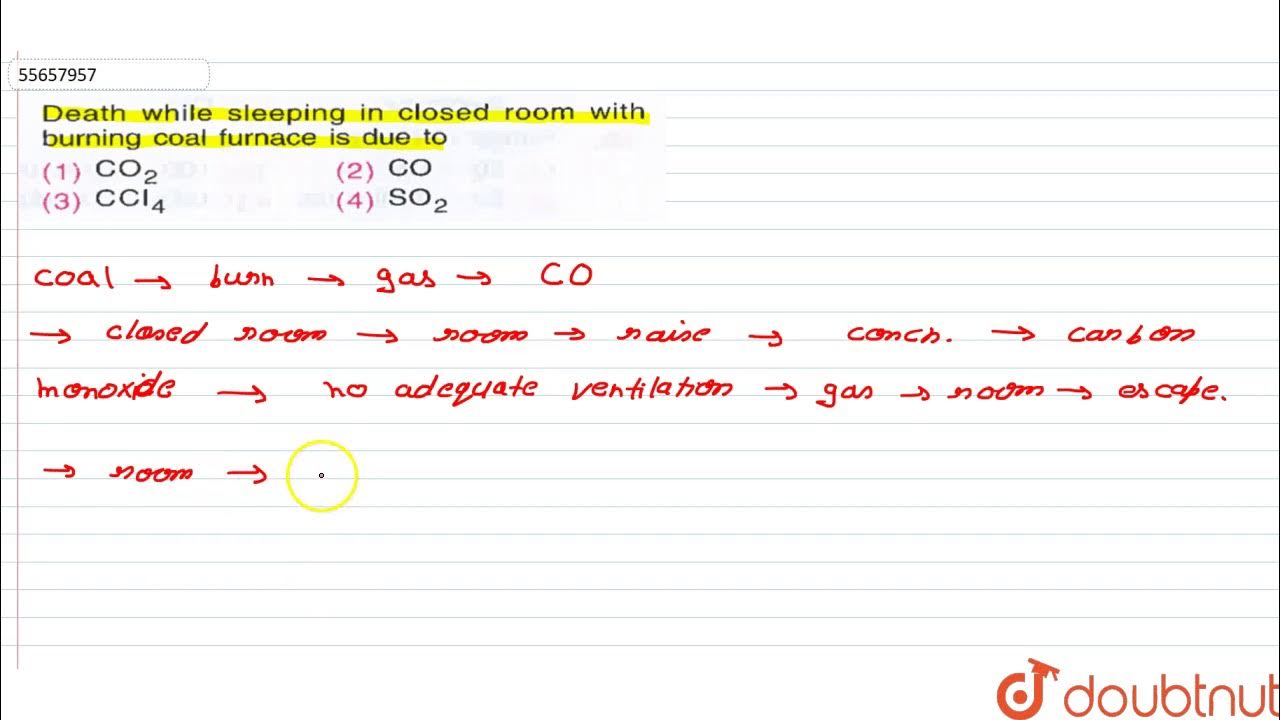 55657957
Death while sleeping in closed room with
burning coal furnace is due to
(1) CO₂ (2) CO
(3) CCl₄ (4) SO₂
coal → burn → gas → CO
→ closed room → room → raise → concn. → carbon
monoxide → no adequate ventilation → gas → room → escape.
→ room →
doubtnut